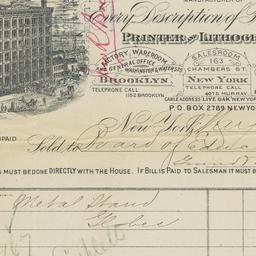 MANUFACTURER OF
every Description of
PRINTER AND LITHOG
FACTORY, WAREROOM
AND GENERAL OFFICE
WASHINGTON & WATER STS
BROOKLYN
TELEPHONE CALL
1152 BROOKLYN
SALESROOM
163
CHAMBERS ST.
NEW YORK
TELEPHONE CALL
4075 MURRAY
CABLE ADDRESS LIVE OAK, NEW YOR
P.O. BOX 2789 NEW YO
New York
PAID
Sold to Board of Educ
S MUST BE DONE DIRECTLY WITH THE HOUSE. IF BILL IS PAID TO SALESMAN IT MUST B
Metal Stand
Globes